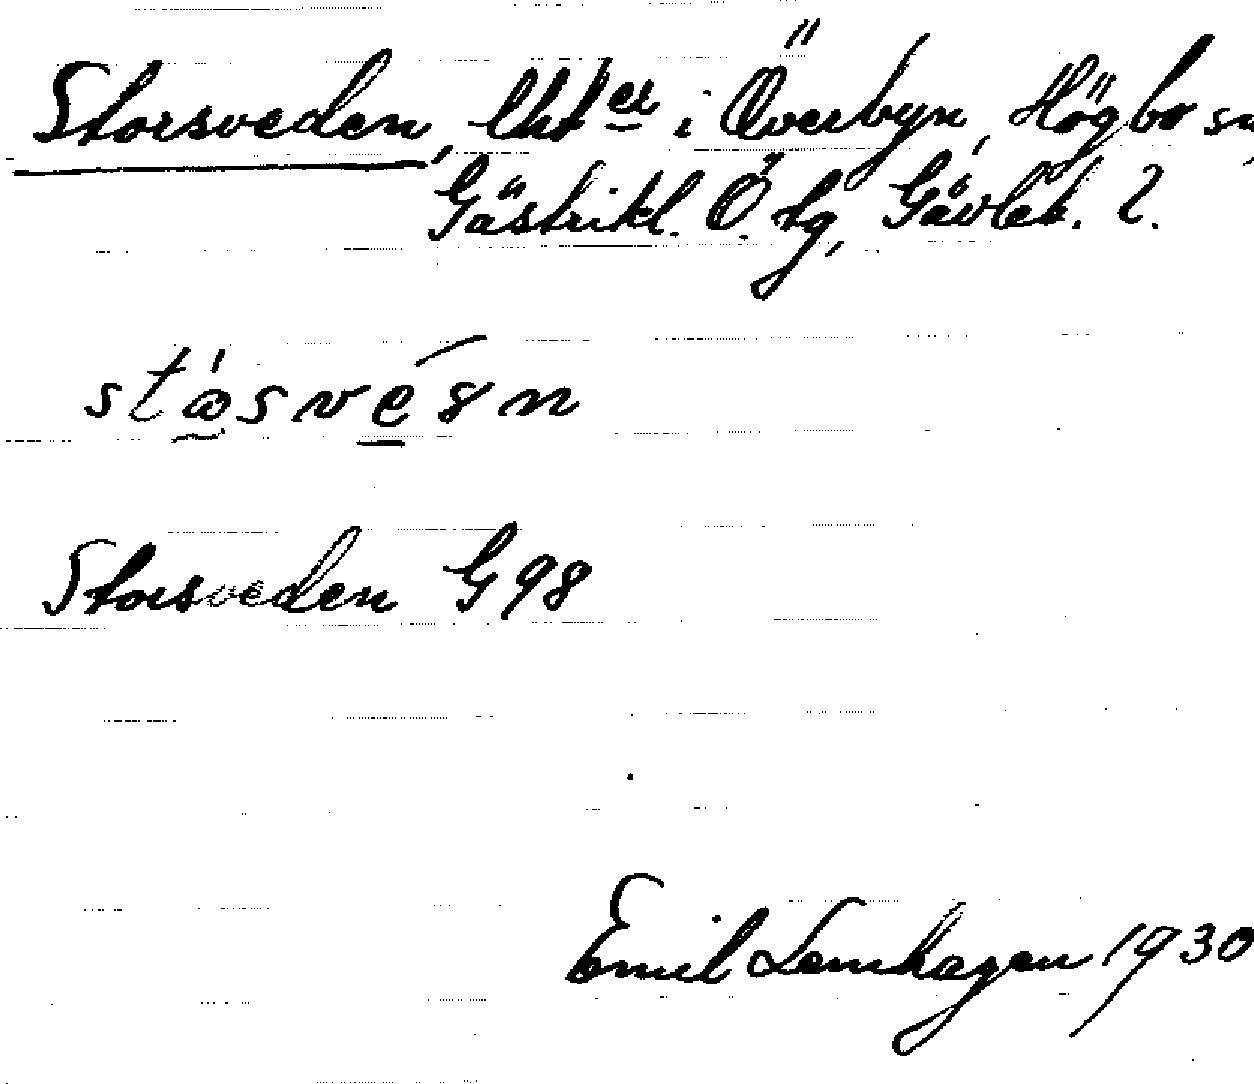 Storsveden, lht er i Överbyn, Högbo sn,
Gästrikl. Ö. tg, Gävleb. l.
Storsveden G 98
Emil Lemhagen 1930